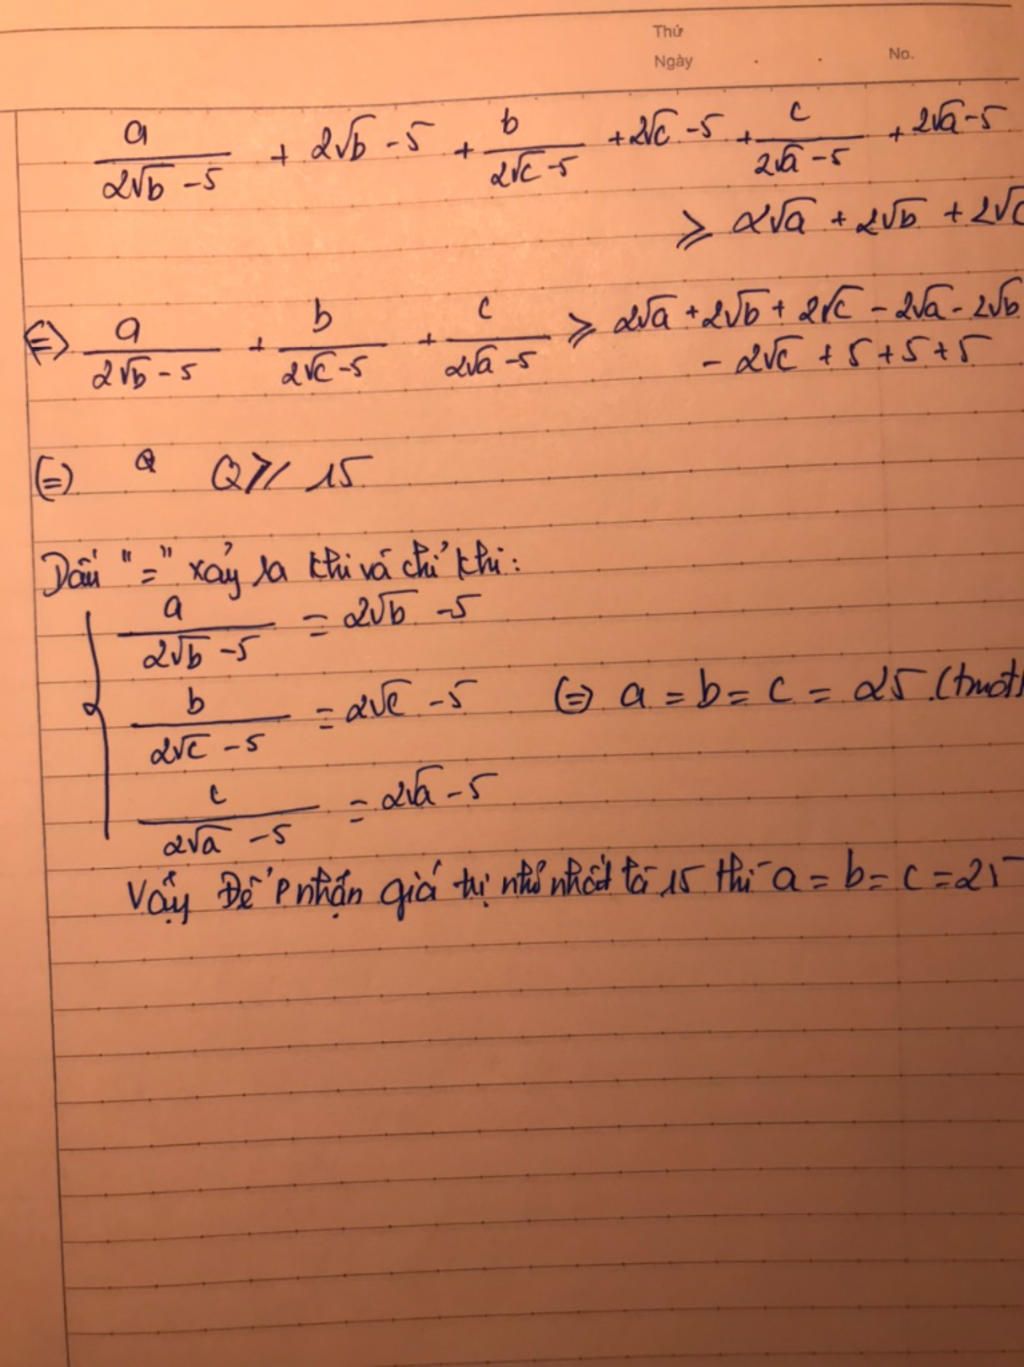 Thứ
Ngày . . No.
a/(2√b - 5) + 2√b - 5 + b/(2√c - 5) + 2√c - 5 + c/(2√a - 5) + 2√a - 5
⩾ 2√a + 2√b + 2√c
(=) a/(2√b - 5) + b/(2√c - 5) + c/(2√a - 5) ⩾ 2√a + 2√b + 2√c - 2√a - 2√b
- 2√c + 5 + 5 + 5
(=) Q Q ⩾ 15
Dấu "=" xảy ra khi và chỉ khi:
a/(2√b - 5) = 2√b - 5
b/(2√c - 5) = 2√c - 5 (=) a = b = c = 25 (tmđk
c/(2√a - 5) = 2√a - 5
Vậy Để P nhận giá trị nhỏ nhất là 15 thì a = b = c = 25